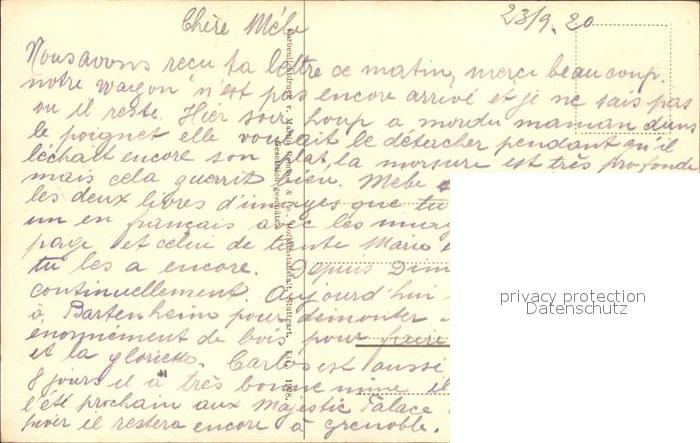 23/9. 20
Chère Mèle
Nous avons reçu ta lettre ce matin, merci beaucoup.
notre wagon n'est pas encore arrivé et je ne sais pas
ou il reste. Hier soir Loup a mordu maman dans
le poignet elle voulait le détacher pendant qu'il
léchait encore son plat, la morsure est très profonde
mais cela guerrit bien. Mèle
les deux livres d'images que tu
un en français avec les
page et celui de tante Marie
tu les a encore. Depuis Dim
continuellement. Aujourd'hui
à Bartenheim pour démonter
énormément de bois pour faire
et la gloriette. Carlos est aussi
8 jours il a très bonne mine il
l'été prochain aux Majestic Palace
hiver il restera encore à Grenoble.
privacy protection
Datenschutz